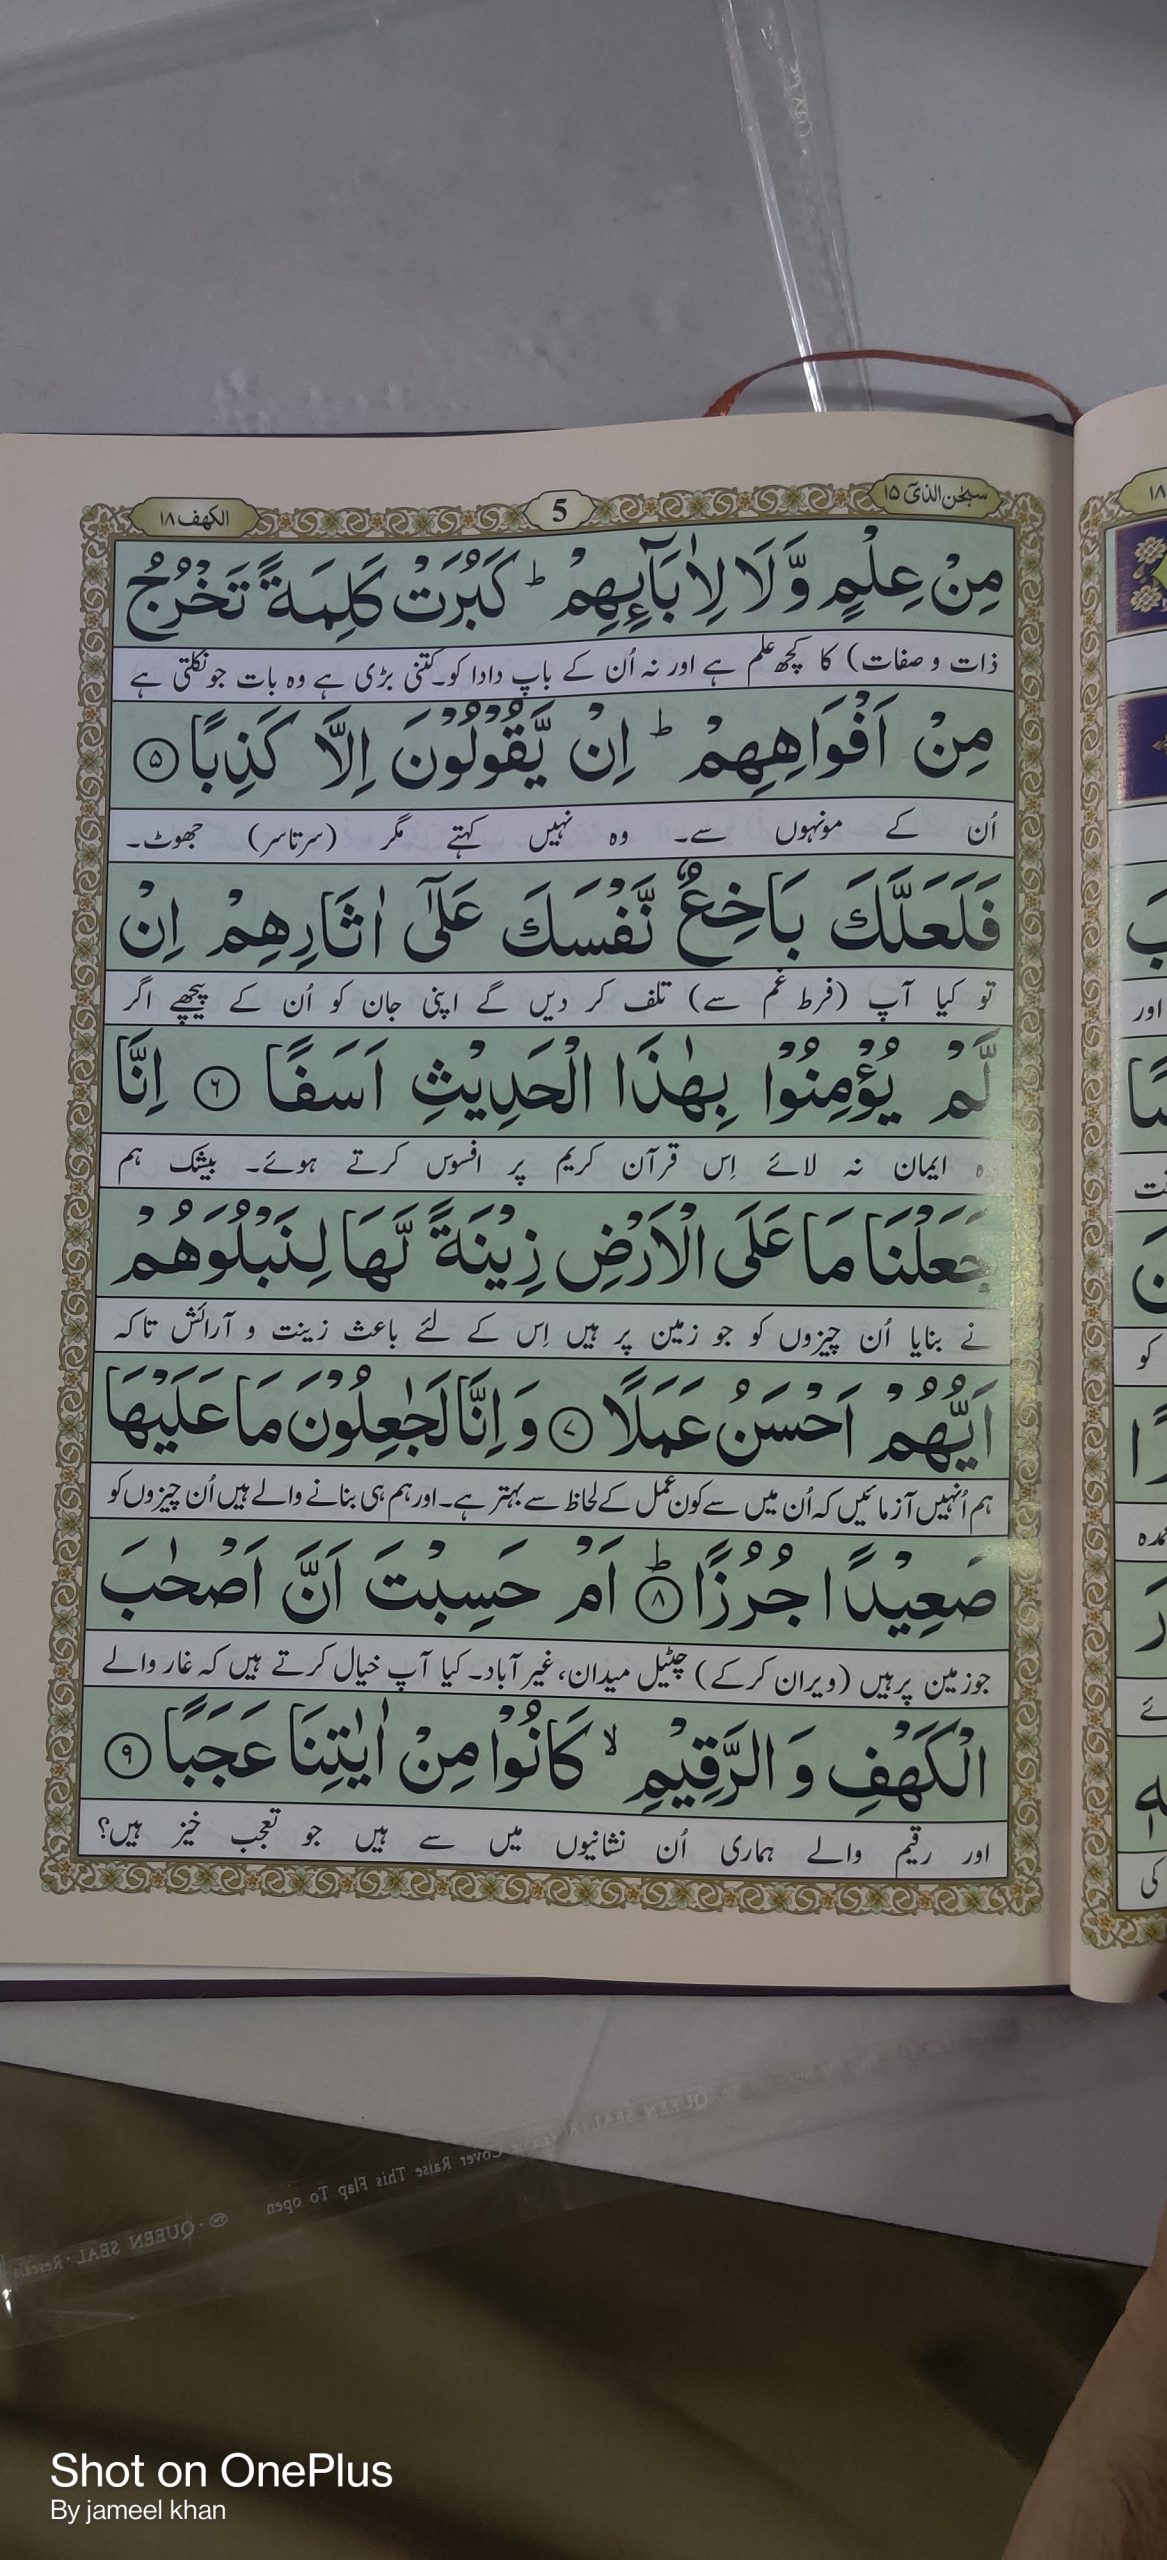 سبحٰن الذیٓ ۱۵
5
الكهف ۱۸
مِنْ عِلْمٍ وَّلَا لِاٰبَآئِهِمْ ؕ كَبُرَتْ كَلِمَةً تَخْرُجُ
ذات و صفات) کا کچھ علم ہے اور نہ اُن کے باپ دادا کو۔ کتنی بڑی ہے وہ بات جو نکلتی ہے
مِنْ اَفْوَاهِهِمْ ؕ اِنْ يَّقُوْلُوْنَ اِلَّا كَذِبًا ۵
اُن کے مونہوں سے۔ وہ نہیں کہتے مگر (سرتاسر) جھوٹ۔
فَلَعَلَّكَ بَاخِعٌ نَّفْسَكَ عَلٰٓى اٰثَارِهِمْ اِنْ
تو کیا آپ (فرط غم سے) تلف کر دیں گے اپنی جان کو اُن کے پیچھے اگر
لَّمْ يُؤْمِنُوْا بِهٰذَا الْحَدِيْثِ اَسَفًا ۶ اِنَّا
وہ ایمان نہ لائے اِس قرآن کریم پر افسوس کرتے ہوئے۔ بیشک ہم
جَعَلْنَا مَا عَلَى الْاَرْضِ زِيْنَةً لَّهَا لِنَبْلُوَهُمْ
نے بنایا اُن چیزوں کو جو زمین پر ہیں اِس کے لئے باعث زینت و آرائش تاکہ
اَيُّهُمْ اَحْسَنُ عَمَلًا ۷ وَ اِنَّا لَجٰعِلُوْنَ مَا عَلَيْهَا
ہم اُنہیں آزمائیں کہ اُن میں سے کون عمل کے لحاظ سے بہتر ہے۔ اور ہم ہی بنانے والے ہیں اُن چیزوں کو
صَعِيْدًا جُرُزًا ؕ ۸ اَمْ حَسِبْتَ اَنَّ اَصْحٰبَ
جو زمین پر ہیں (ویران کر کے) چٹیل میدان، غیر آباد۔ کیا آپ خیال کرتے ہیں کہ غار والے
الْكَهْفِ وَ الرَّقِيْمِ ۙ كَانُوْا مِنْ اٰيٰتِنَا عَجَبًا ۹
اور رقیم والے ہماری اُن نشانیوں میں سے ہیں جو تعجب خیز ہیں؟
۱۸
اور
کو
کی
QUEEN SEAL
Cover Raise This Flap To open
QUEEN SEAL
Shot on OnePlus
By jameel khan